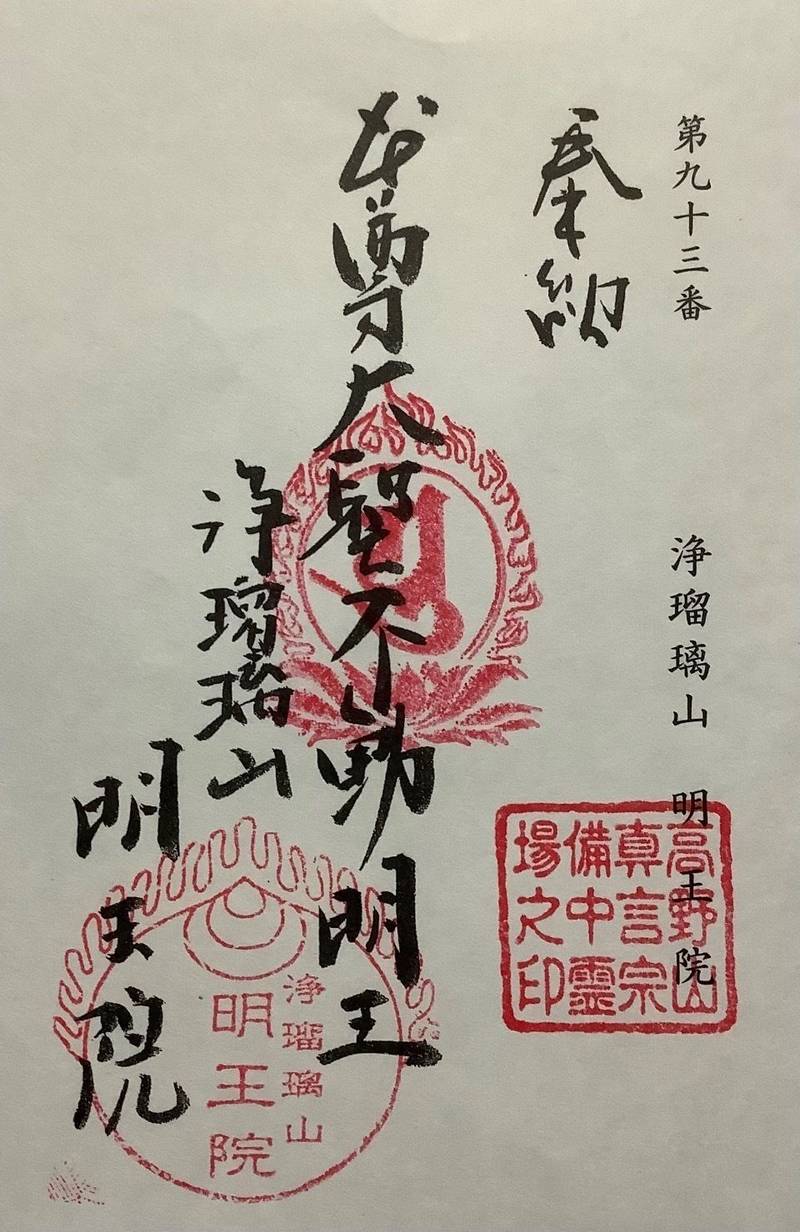 第九十三番 浄瑠璃山 明王院
奉納
本尊大聖不動明王
浄瑠璃山
明王院
高野山
真言宗
備中霊
場之印
浄瑠璃山
明王院